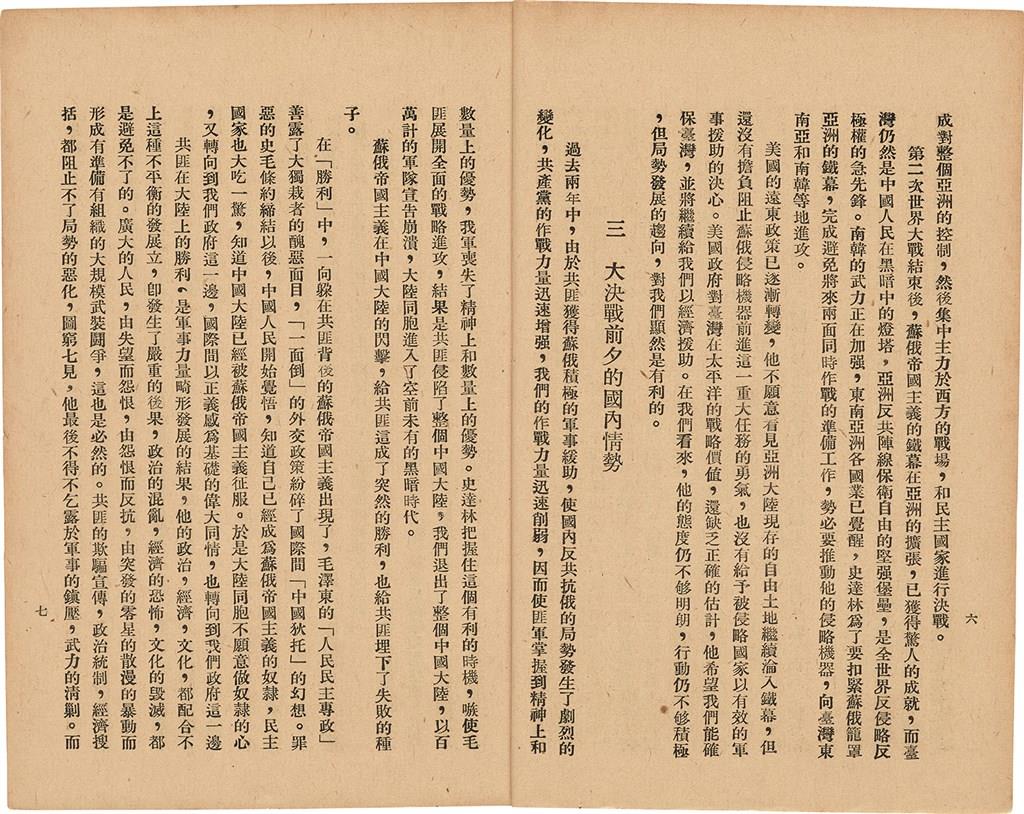 成對整個亞洲的控制，然後集中主力於西方的戰場，和民主國家進行決戰。
第二次世界大戰結束後，蘇俄帝國主義的鐵幕在亞洲的擴張，已獲得驚人的成就，而臺
灣仍然是中國人民在黑暗中的燈塔，亞洲反共陣線保衛自由的堅强堡壘，是全世界反侵略反
極權的急先鋒。南韓的武力正在加强，東南亞洲各國業已覺醒，史達林爲了要扣緊蘇俄籠罩
亞洲的鐵幕，完成避免將來兩面同時作戰的準備工作，勢必要推動他的侵略機器，向臺灣東
南亞和南韓等地進攻。
美國的遠東政策已逐漸轉變，他不願意看見亞洲大陸現存的自由土地繼續淪入鐵幕，但
還沒有擔負阻止蘇俄侵略機器前進這一重大任務的勇氣，也沒有給予被侵略國家以有效的軍
事援助的決心。美國政府對臺灣在太平洋的戰略價值，還缺乏正確的估計，他希望我們能確
保臺灣，並將繼續給我們以經濟援助。在我們看來，他的態度仍不够明朗，行動仍不够積極
，但局勢發展的趨向，對我們顯然是有利的。
三　大決戰前夕的國內情勢
過去兩年中，由於共匪獲得蘇俄積極的軍事緩助，使國內反共抗俄的局勢發生了劇烈的
變化，共產黨的作戰力量迅速增强，我們的作戰力量迅速削弱，因而使匪軍掌握到精神上和
六
數量上的優勢，我軍喪失了精神上和數量上的優勢。史達林把握住這個有利的時機，嗾使毛
匪展開全面的戰略進攻，結果是共匪侵陷了整個中國大陸，我們退出了整個中國大陸，以百
萬計的軍隊宣告崩潰，大陸同胞進入了空前未有的黑暗時代。
蘇俄帝國主義在中國大陸的閃擊，給共匪造成了突然的勝利，也給共匪埋下了失敗的種
子。
在「勝利」中，一向躲在共匪背後的蘇俄帝國主義出現了，毛澤東的「人民民主專政」
善露了大獨裁者的醜惡面目，「一面倒」的外交政策紛碎了國際間「中國狄托」的幻想。罪
惡的史毛條約締結以後，中國人民開始覺悟，知道自己已經成爲蘇俄帝國主義的奴隸，民主
國家也大吃一驚，知道中國大陸已經被蘇俄帝國主義征服。於是大陸同胞不願意做奴隸的心
，又轉向到我們政府這一邊，國際間以正義感爲基礎的偉大同情，也轉向到我們政府這一邊
共匪在大陸上的勝利，是軍事力量畸形發展的結果，他的政治，經濟，文化，都配合不
上這種不平衡的發展立，卽發生了嚴重的後果，政治的混亂，經濟的恐怖，文化的毀滅，都
是避免不了的。廣大的人民，由失望而怨恨，由怨恨而反抗，由突發的零星的散漫的暴動而
形成有準備有組織的大規模武裝鬪爭，這也是必然的。共匪的欺騙宣傳，政治統制，經濟搜
括，都阻止不了局勢的惡化，圖窮七見，他最後不得不乞靈於軍事的鎭壓，武力的清剿。而
七